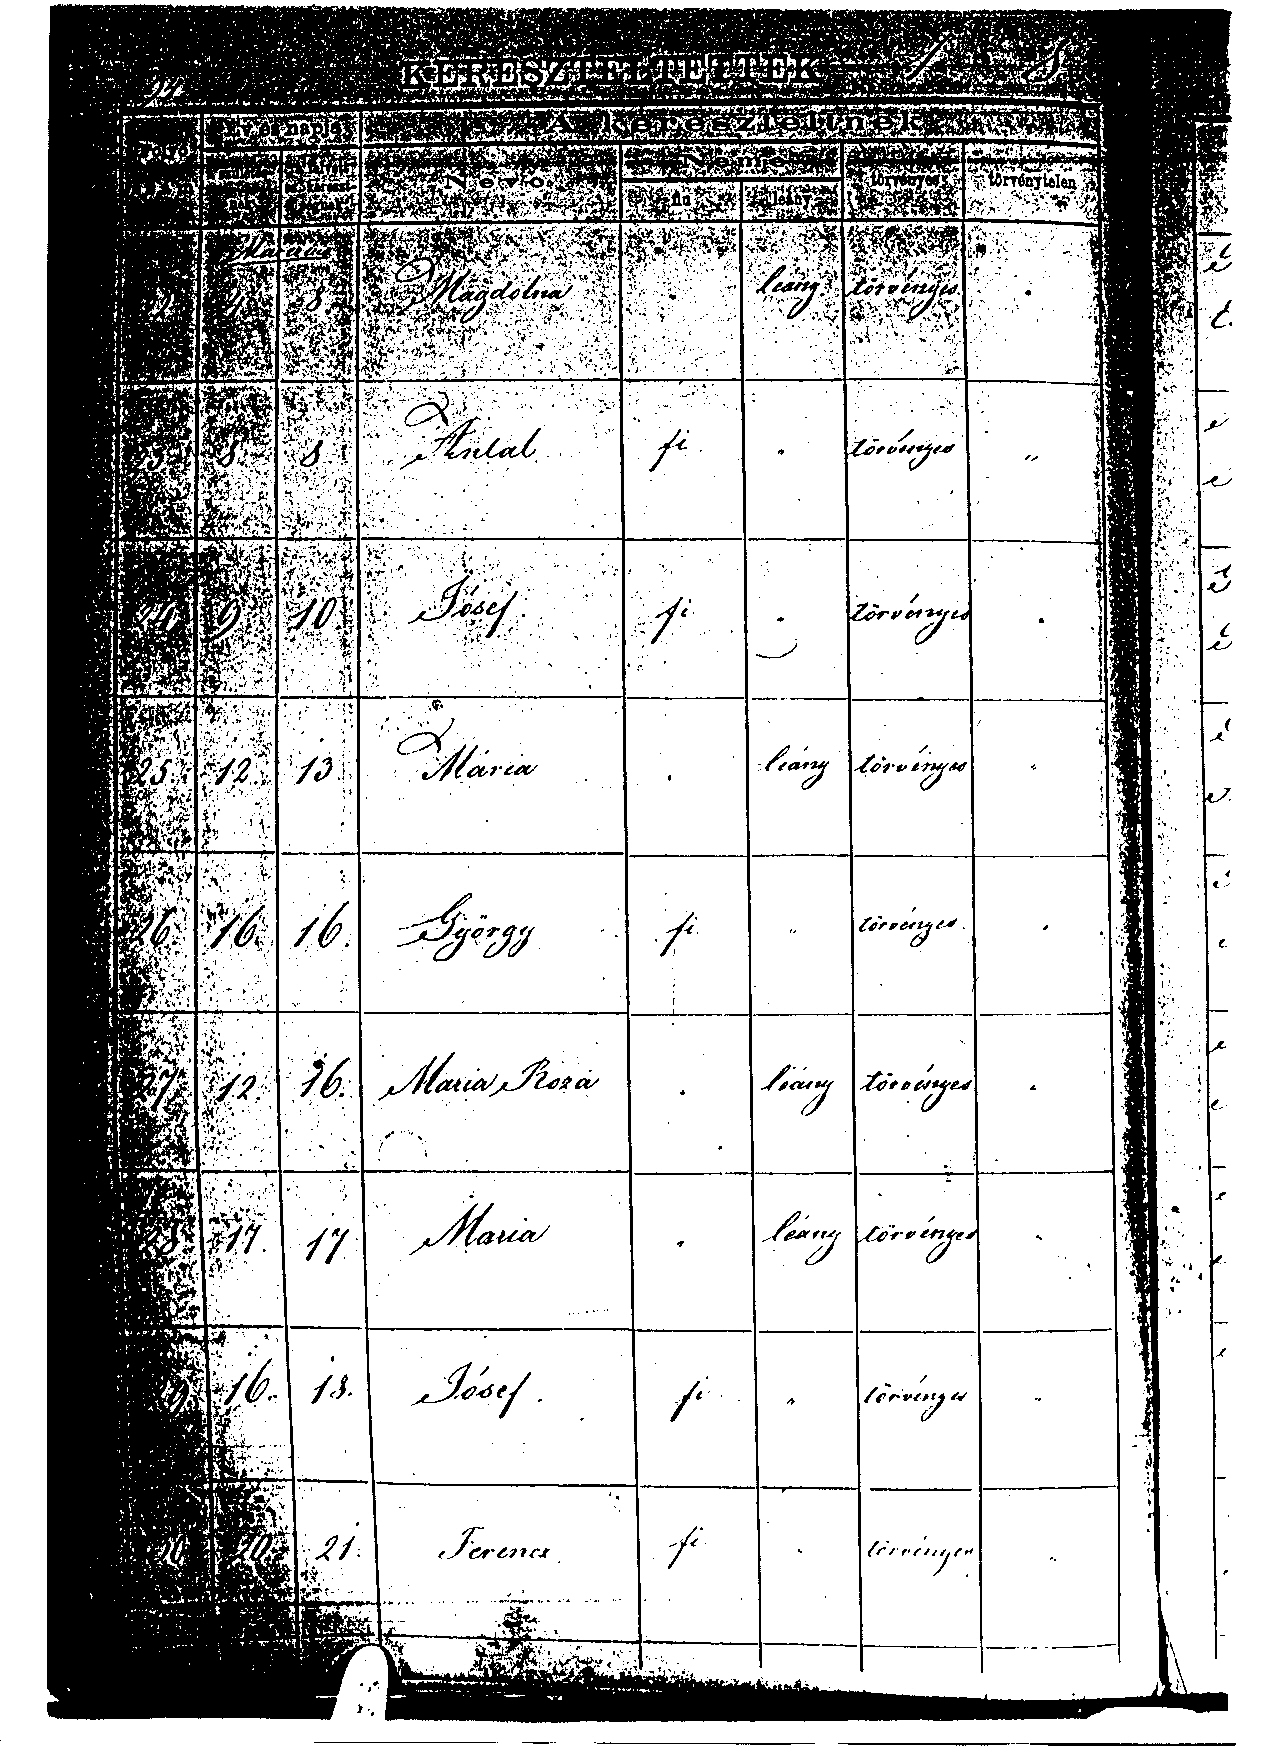 KERESZTELTETTEK 1 8
Év és napja A kereszteltnek
Neve Neme törvényes törvénytelen
fiu leány
8. Magdolna . leány törvényes .
8. 8. Antal fi . törvényes "
24 9 10 Jósef fi . törvényes .
25. 12. 13. Mária . leány törvényes .
26 16. 16. György fi " törvényes .
27 12. 16. Maria Roza . leány törvényes .
28 17. 17 Maria . leány törvényes .
16. 18. Jósef . fi " törvényes "
20. 21. Ferencz fi . törvényes .